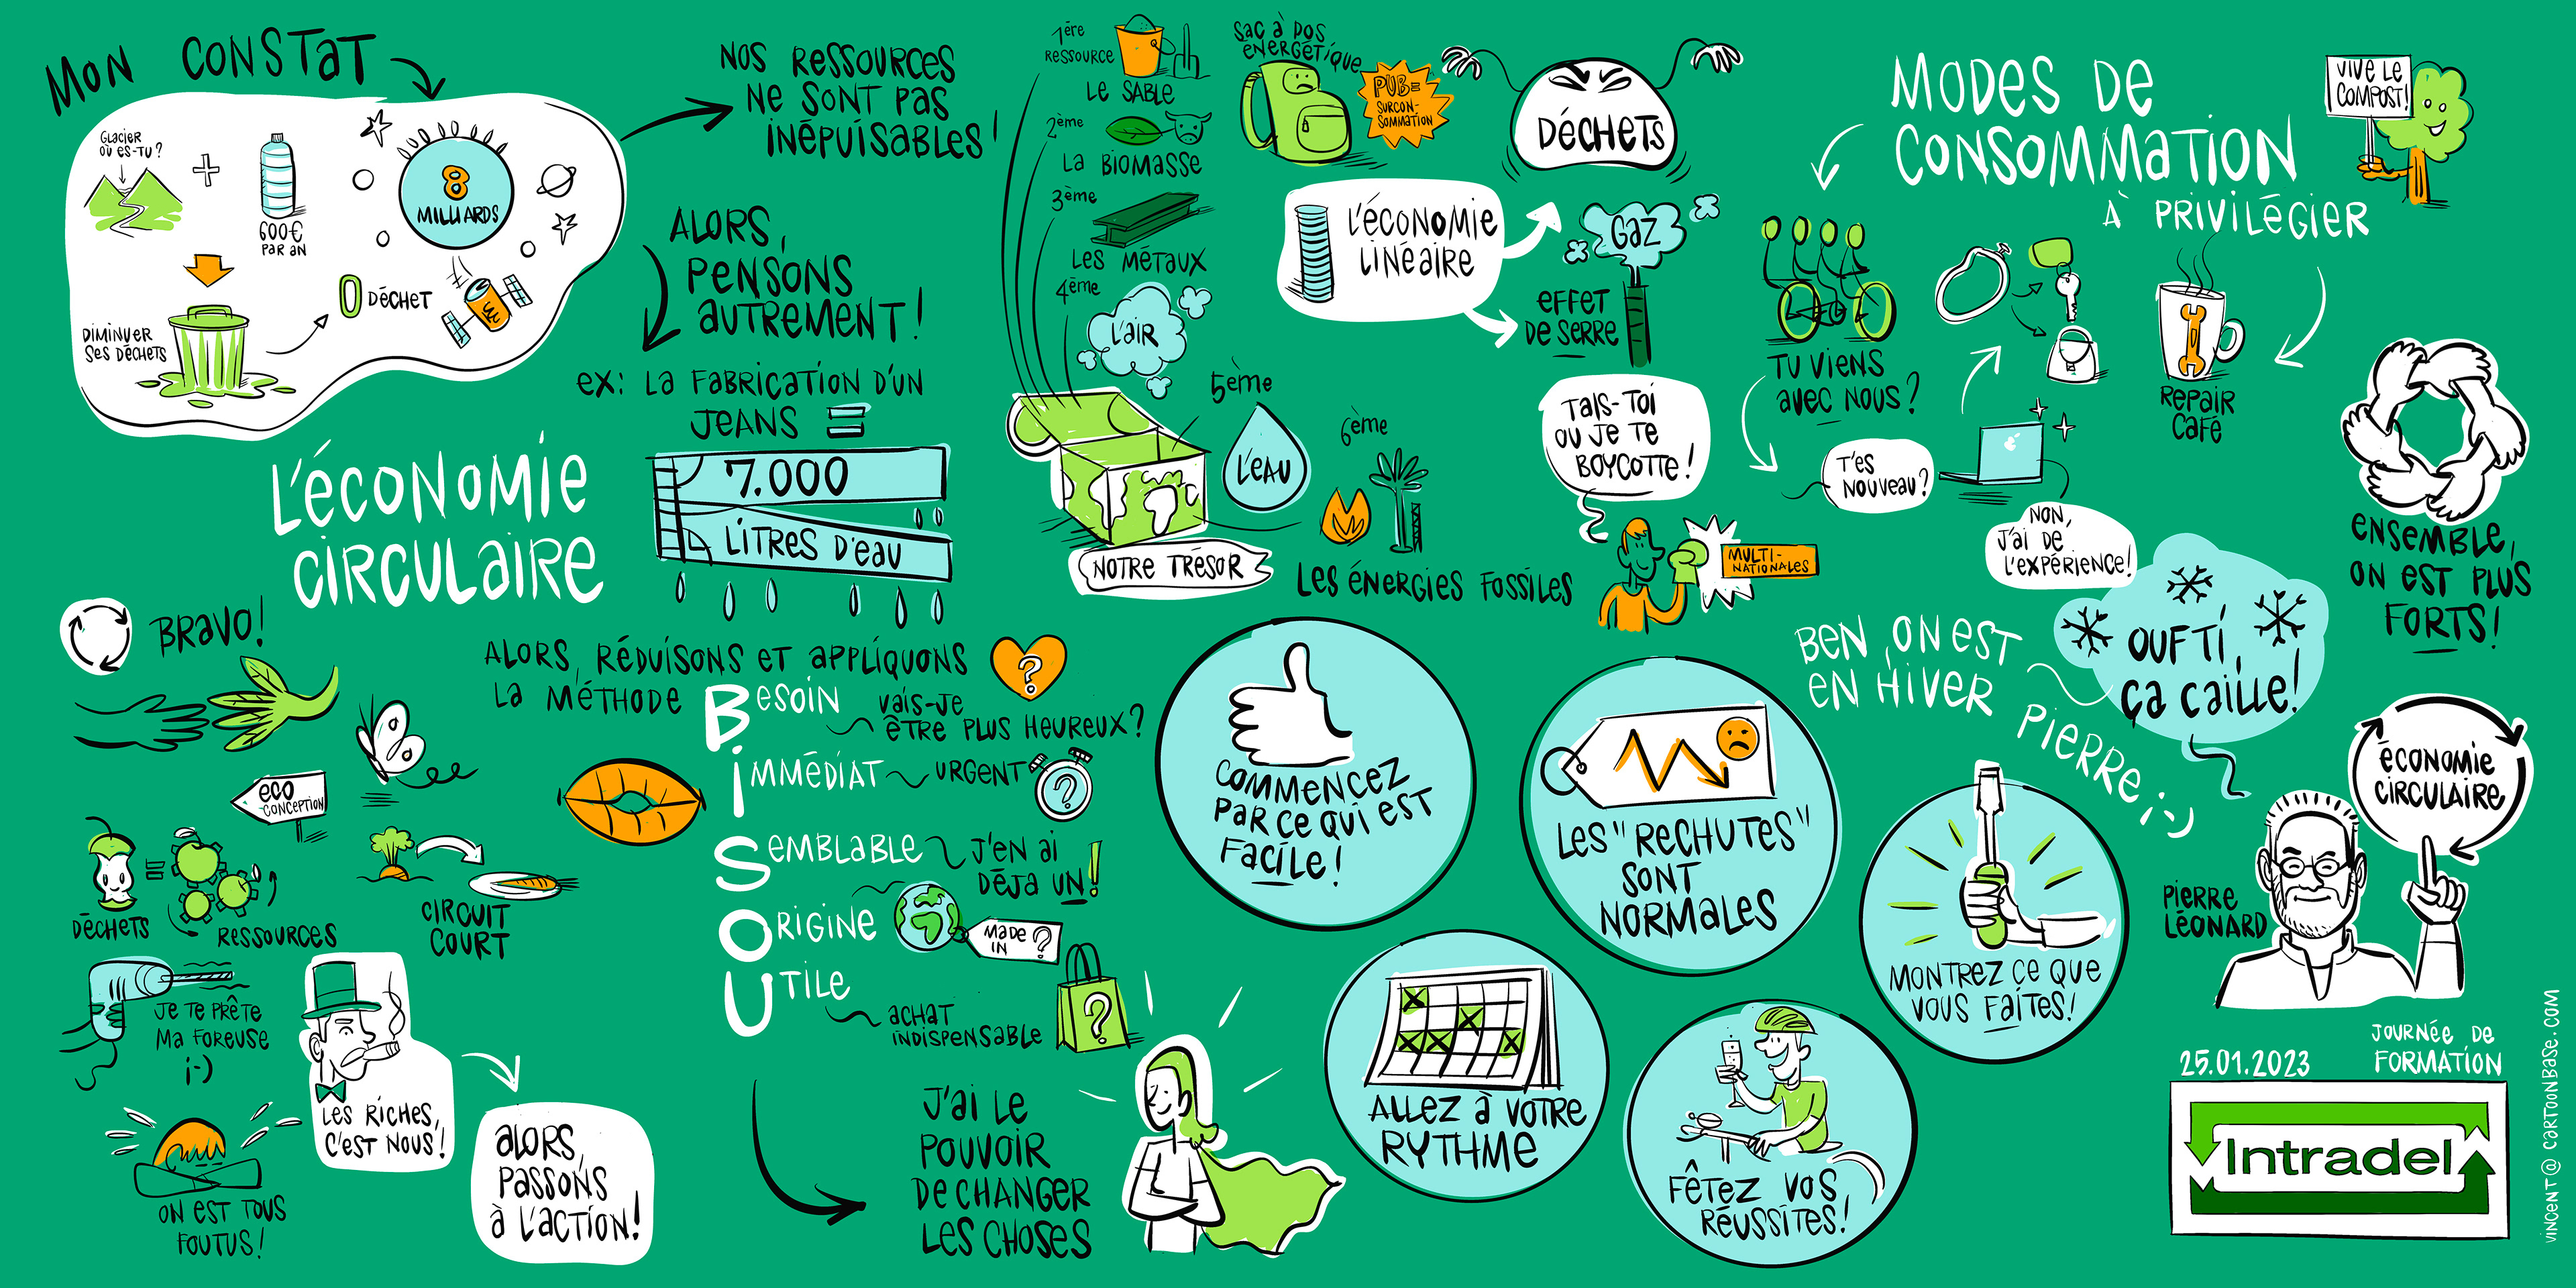 MON CONSTAT
GLACIER
OÙ ES-TU?
600€
PAR AN
8
MILLIARDS
DIMINUER
SES DÉCHETS
0 DÉCHET
NOS RESSOURCES
NE SONT PAS
INÉPUISABLES!
ALORS,
PENSONS
AUTREMENT!
ex: LA FABRICATION D'UN
JEANS =
7.000
LITRES D'EAU
L'ÉCONOMIE
CIRCULAIRE
BRAVO!
ECO
CONCEPTION
DÉCHETS
=
RESSOURCES
CIRCUIT
COURT
JE TE PRÊTE
MA FOREUSE
;-)
LES RICHES,
C'EST NOUS!
ON EST TOUS
FOUTUS!
ALORS,
PASSONS
À L'ACTION!
ALORS, RÉDUISONS ET APPLIQUONS
LA MÉTHODE
BESOIN
VAIS-JE
ÊTRE PLUS HEUREUX?
?
IMMÉDIAT
URGENT
?
SEMBLABLE
J'EN AI
DÉJA UN!
ORIGINE
MADE
IN ?
UTILE
ACHAT
INDISPENSABLE
?
J'AI LE
POUVOIR
DE CHANGER
LES CHOSES
1ère
RESSOURCE
LE SABLE
2ème
LA BIOMASSE
3ème
LES MÉTAUX
4ème
L'AIR
5ème
L'EAU
6ème
LES ÉNERGIES FOSSILES
NOTRE TRÉSOR
SAC À DOS
ÉNERGÉTIQUE
PUB=
SURCON-
SOMMATION
DÉCHETS
L'ÉCONOMIE
LINÉAIRE
GAZ
EFFET
DE SERRE
TAIS-TOI
OU JE TE
BOYCOTTE!
MULTI-
NATIONALES
MODES DE
CONSOMMATION
À PRIVILÉGIER
VIVE LE
COMPOST!
TU VIENS
AVEC NOUS?
REPAIR
CAFÉ
T'ES
NOUVEAU?
NON,
J'AI DE
L'EXPÉRIENCE!
ENSEMBLE,
ON EST PLUS
FORTS!
OUFTI,
ÇA CAILLE!
BEN, ON EST
EN HIVER
PIERRE ;-)
COMMENCEZ
PAR CE QUI EST
FACILE!
LES "RECHUTES"
SONT
NORMALES
MONTREZ CE QUE
VOUS FAITES!
ALLEZ À VOTRE
RYTHME
FÊTEZ VOS
RÉUSSITES!
ÉCONOMIE
CIRCULAIRE
PIERRE
LÉONARD
25.01.2023
JOURNÉE DE
FORMATION
Intradel
VINCENT @ CARTOONBASE.COM